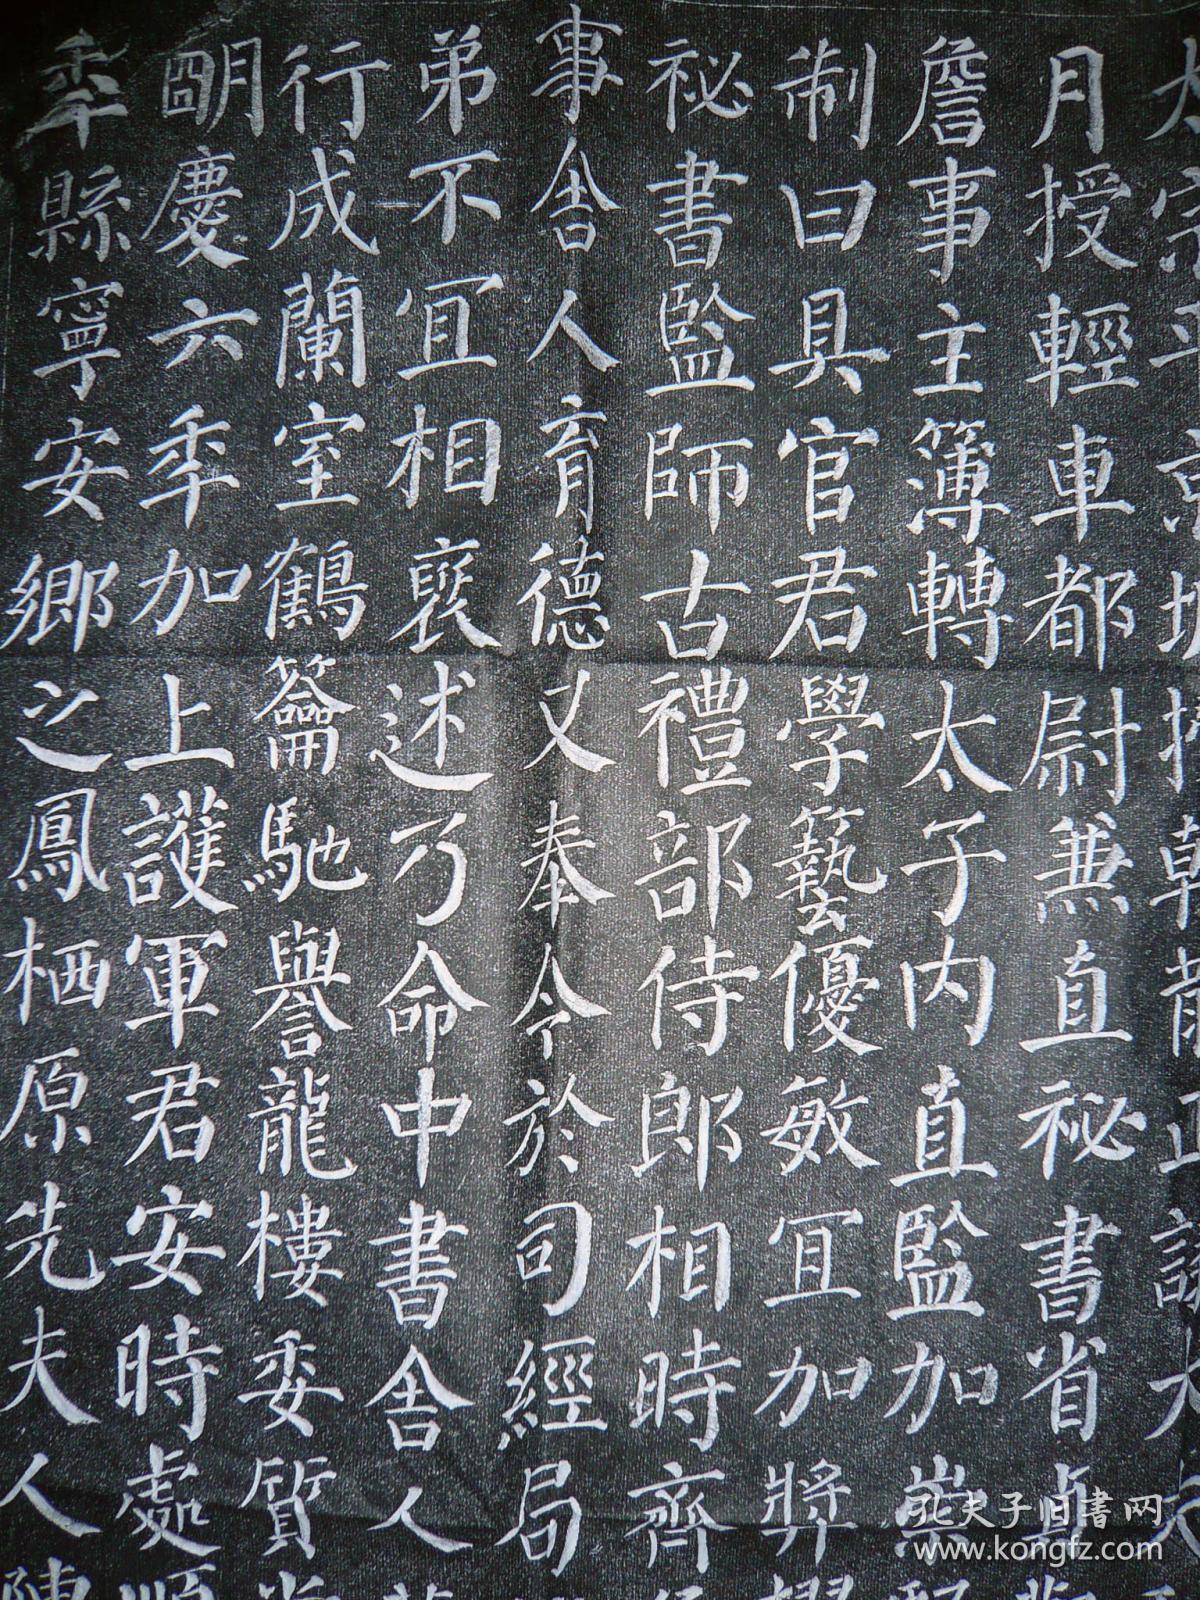 太宗平京城授朝散正議大夫
月授輕車都尉兼直祕書省貞觀
詹事主簿轉太子内直監加崇賢
制曰具官君學藝優敏宜加獎擢
祕書監師古禮部侍郎相時齊
事舍人育德又奉令於司經局
弟不宜相襃述乃命中書舍人蕭
行成蘭室鶴籥馳譽龍樓委質當
明慶六年加上護軍君安時處順
年縣寧安鄉之鳳栖原先夫人陳
孔夫子旧書网
www.kongfz.com